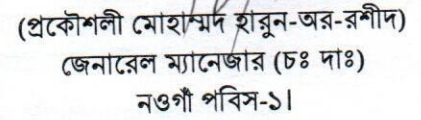 (প্রকৌশলী মোহাম্মদ হারুন-অর-রশীদ)
জেনারেল ম্যানেজার (চঃ দাঃ)
নওগাঁ পবিস-১।